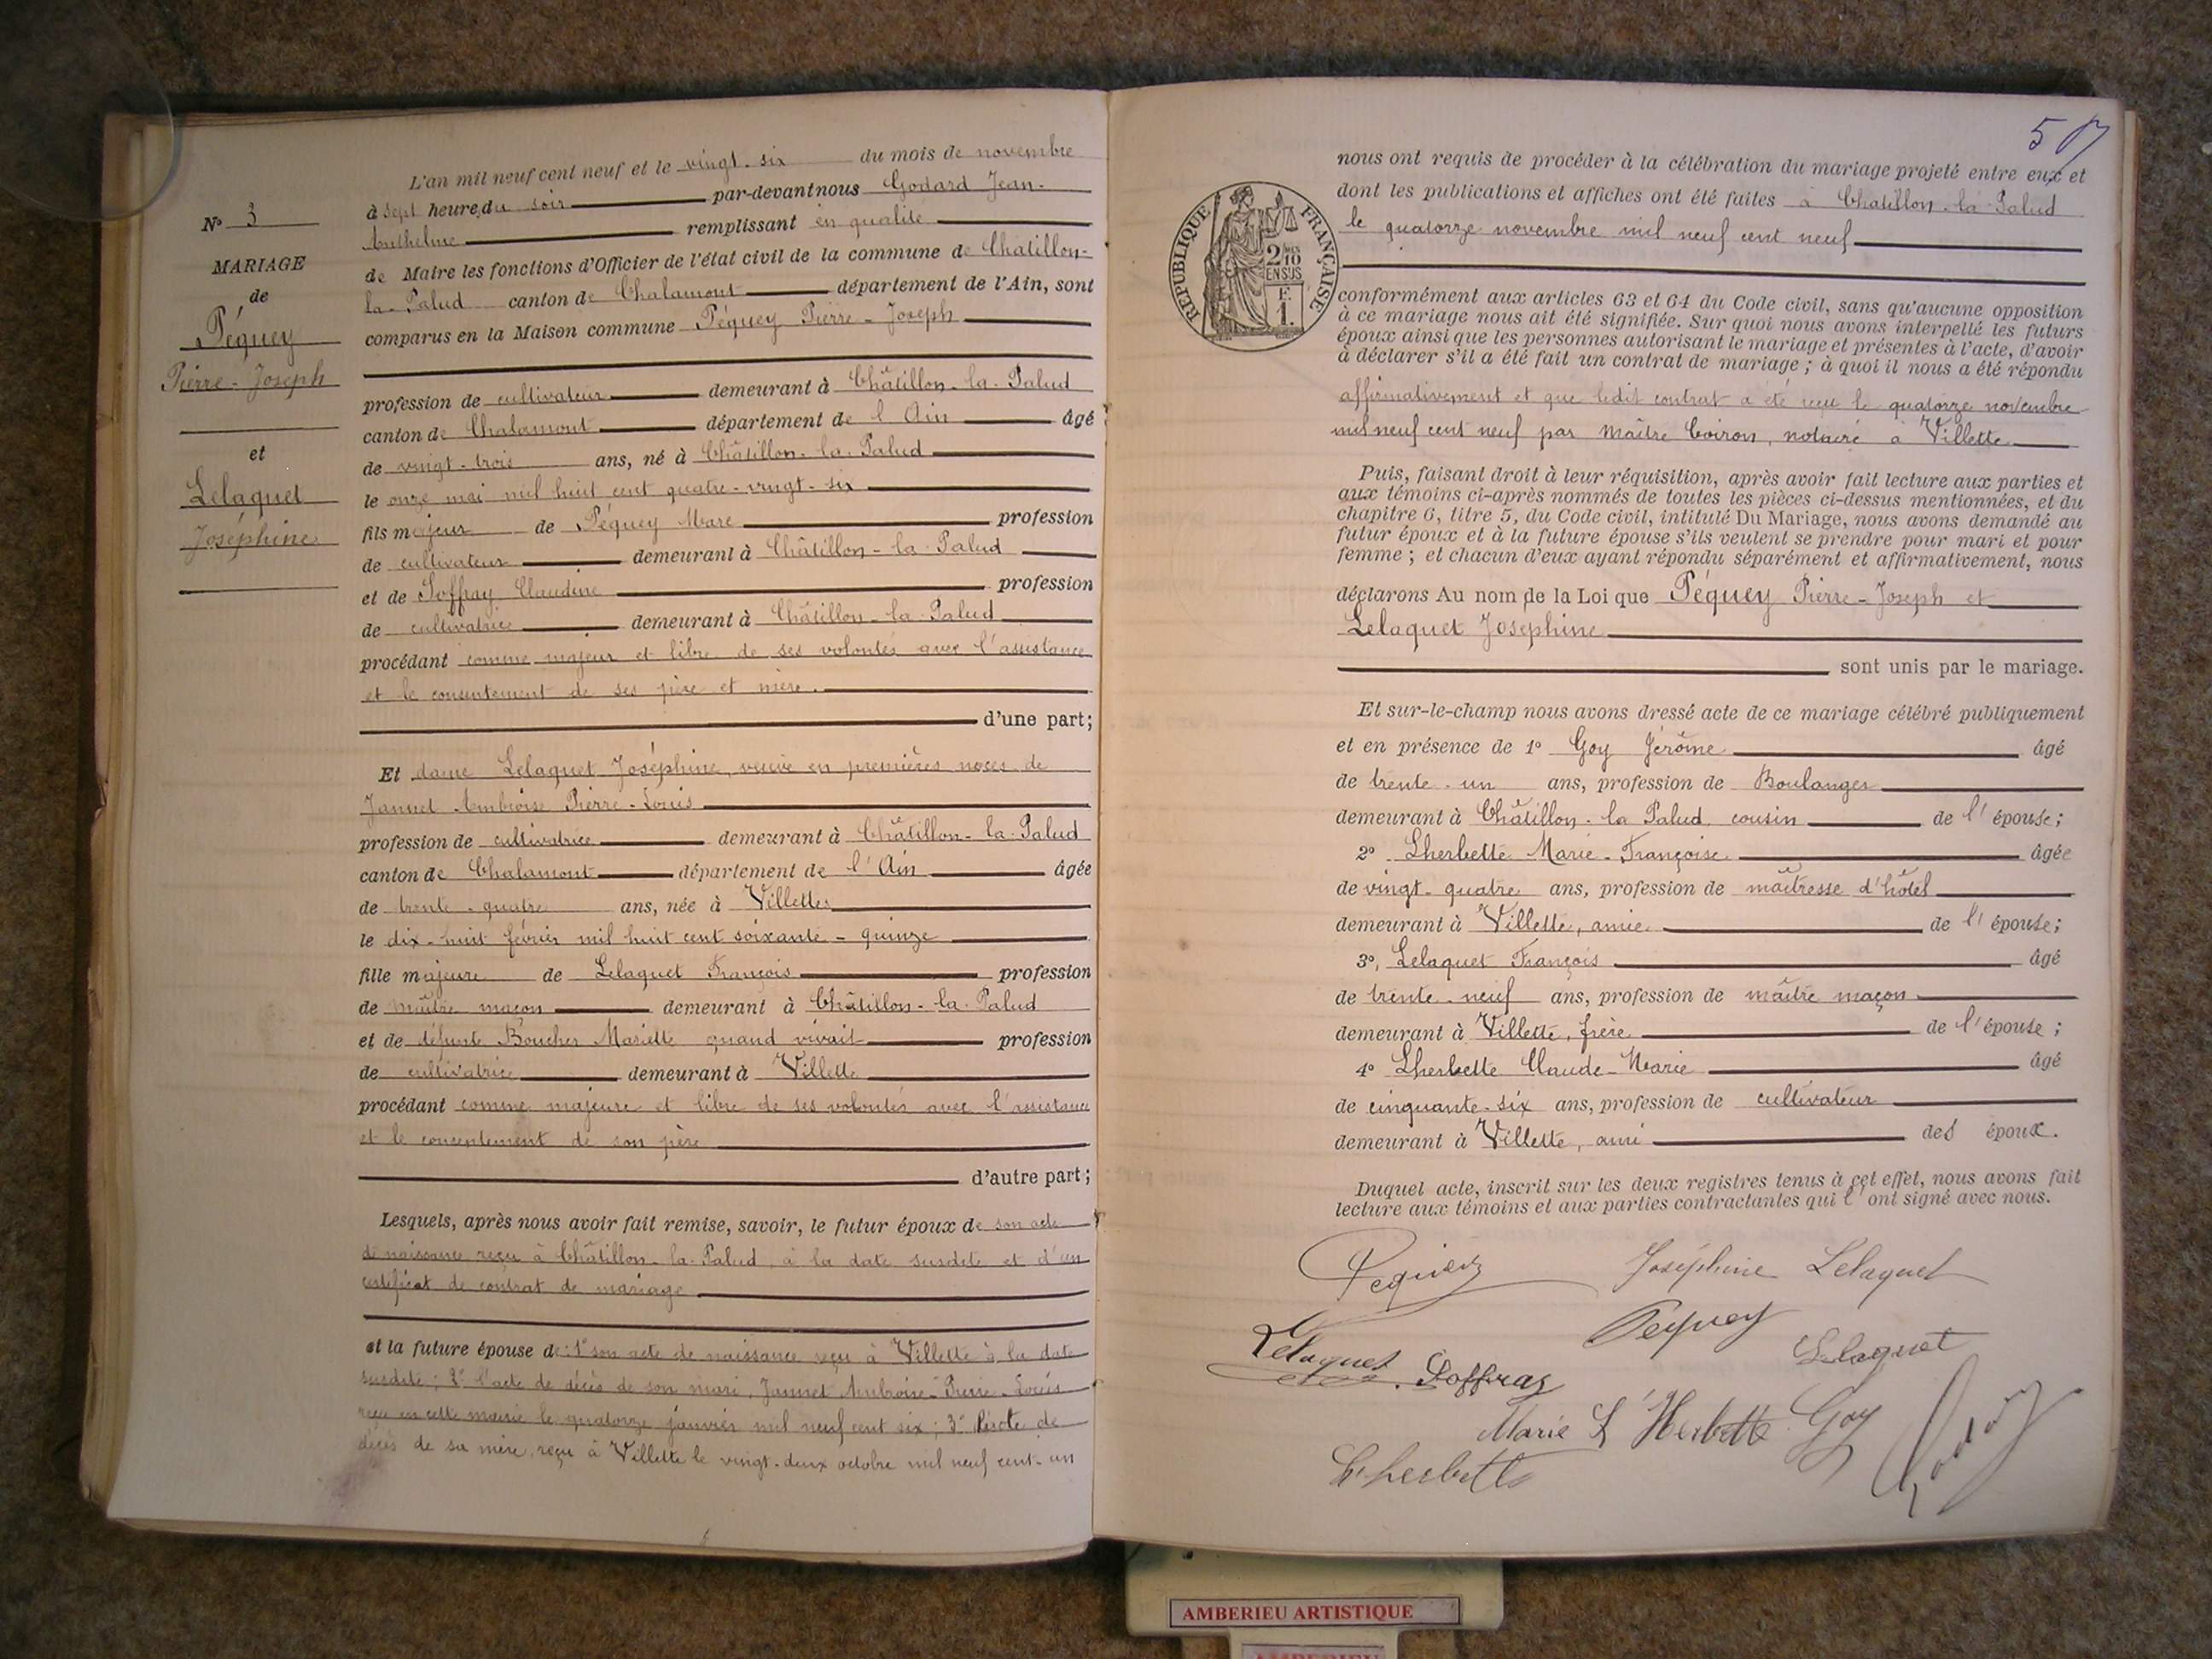 L'an mil neuf cent neuf et le vingt-six du mois de novembre
à sept heures du soir par-devant nous Godard Jean-
Anthelme remplissant en qualité
de Maire les fonctions d'Officier de l'état civil de la commune de Châtillon-
la-Palud canton de Chalamont département de l'Ain, sont
comparus en la Maison commune Péquey Pierre-Joseph
profession de cultivateur demeurant à Châtillon-la-Palud
canton de Chalamont département de l'Ain âgé
de vingt-trois ans, né à Châtillon-la-Palud
le onze mai mil huit cent quatre-vingt-six
fils majeur de Péquey Marc profession
de cultivateur demeurant à Châtillon-la-Palud
et de Soffray Claudine profession
de cultivatrice demeurant à Châtillon-la-Palud
procédant comme majeur et libre de ses volontés avec l'assistance
et le consentement de ses père et mère.
d'une part;
Et dame Lelaquet Joséphine, veuve en premières noces de
Jannet Ambroise Pierre-Louis
profession de cultivatrice demeurant à Châtillon-la-Palud
canton de Chalamont département de l'Ain âgée
de trente-quatre ans, née à Villette
le dix-huit février mil huit cent soixante-quinze
fille majeure de Lelaquet François profession
de maître maçon demeurant à Châtillon-la-Palud
et de défunte Boucher Mariette quand vivait profession
de cultivatrice demeurant à Villette
procédant comme majeure et libre de ses volontés avec l'assistance
et le consentement de son père
d'autre part;
Lesquels, après nous avoir fait remise, savoir, le futur époux de son acte
de naissance reçu à Châtillon-la-Palud, à la date susdite et d'un
certificat de contrat de mariage
et la future épouse de: 1° son acte de naissance reçu à Villette à la date
susdite; 2° l'acte de décès de son mari, Jannet Ambroise-Pierre-Louis
reçu en cette mairie le quatorze janvier mil neuf cent six; 3° l'acte de
décès de sa mère, reçu à Villette le vingt-deux octobre mil neuf cent-un
N° 3
MARIAGE
de
Péquey
Pierre-Joseph
et
Lelaquet
Joséphine
nous ont requis de procéder à la célébration du mariage projeté entre eux et
dont les publications et affiches ont été faites à Châtillon-la-Palud
le quatorze novembre mil neuf cent neuf
RÉPUBLIQUE FRANÇAISE
2/10
EN SUS
F.
1.
conformément aux articles 63 et 64 du Code civil, sans qu'aucune opposition
à ce mariage nous ait été signifiée. Sur quoi nous avons interpellé les futurs
époux ainsi que les personnes autorisant le mariage et présentes à l'acte, d'avoir
à déclarer s'il a été fait un contrat de mariage; à quoi il nous a été répondu
affirmativement et que ledit contrat a été reçu le quatorze novembre
mil neuf cent neuf par Maître Coiron, notaire à Villette
Puis, faisant droit à leur réquisition, après avoir fait lecture aux parties et
aux témoins ci-après nommés de toutes les pièces ci-dessus mentionnées, et du
chapitre 6, titre 5, du Code civil, intitulé Du Mariage, nous avons demandé au
futur époux et à la future épouse s'ils veulent se prendre pour mari et pour
femme; et chacun d'eux ayant répondu séparément et affirmativement, nous
déclarons Au nom de la Loi que Péquey Pierre-Joseph et
Lelaquet Josephine
sont unis par le mariage.
Et sur-le-champ nous avons dressé acte de ce mariage célébré publiquement
et en présence de 1° Goy Jérôme âgé
de trente-un ans, profession de Boulanger
demeurant à Châtillon-la Palud, cousin de l'épouse;
2° Lherbette Marie-Françoise âgée
de vingt-quatre ans, profession de maîtresse d'hôtel
demeurant à Villette, amie de l'épouse;
3°, Lelaquet François âgé
de trente-neuf ans, profession de maître maçon
demeurant à Villette, frère de l'épouse;
4° Lherbette Claude-Marie âgé
de cinquante-six ans, profession de cultivateur
demeurant à Villette, ami des époux.
Duquel acte, inscrit sur les deux registres tenus à cet effet, nous avons fait
lecture aux témoins et aux parties contractantes qui l'ont signé avec nous.
Pequey Joséphine Lelaquet
Lelaquet Soffray Péquey Lelaquet
Marie L'Herbette Goy Godard
Lherbette
AMBERIEU ARTISTIQUE
AMBERIEU